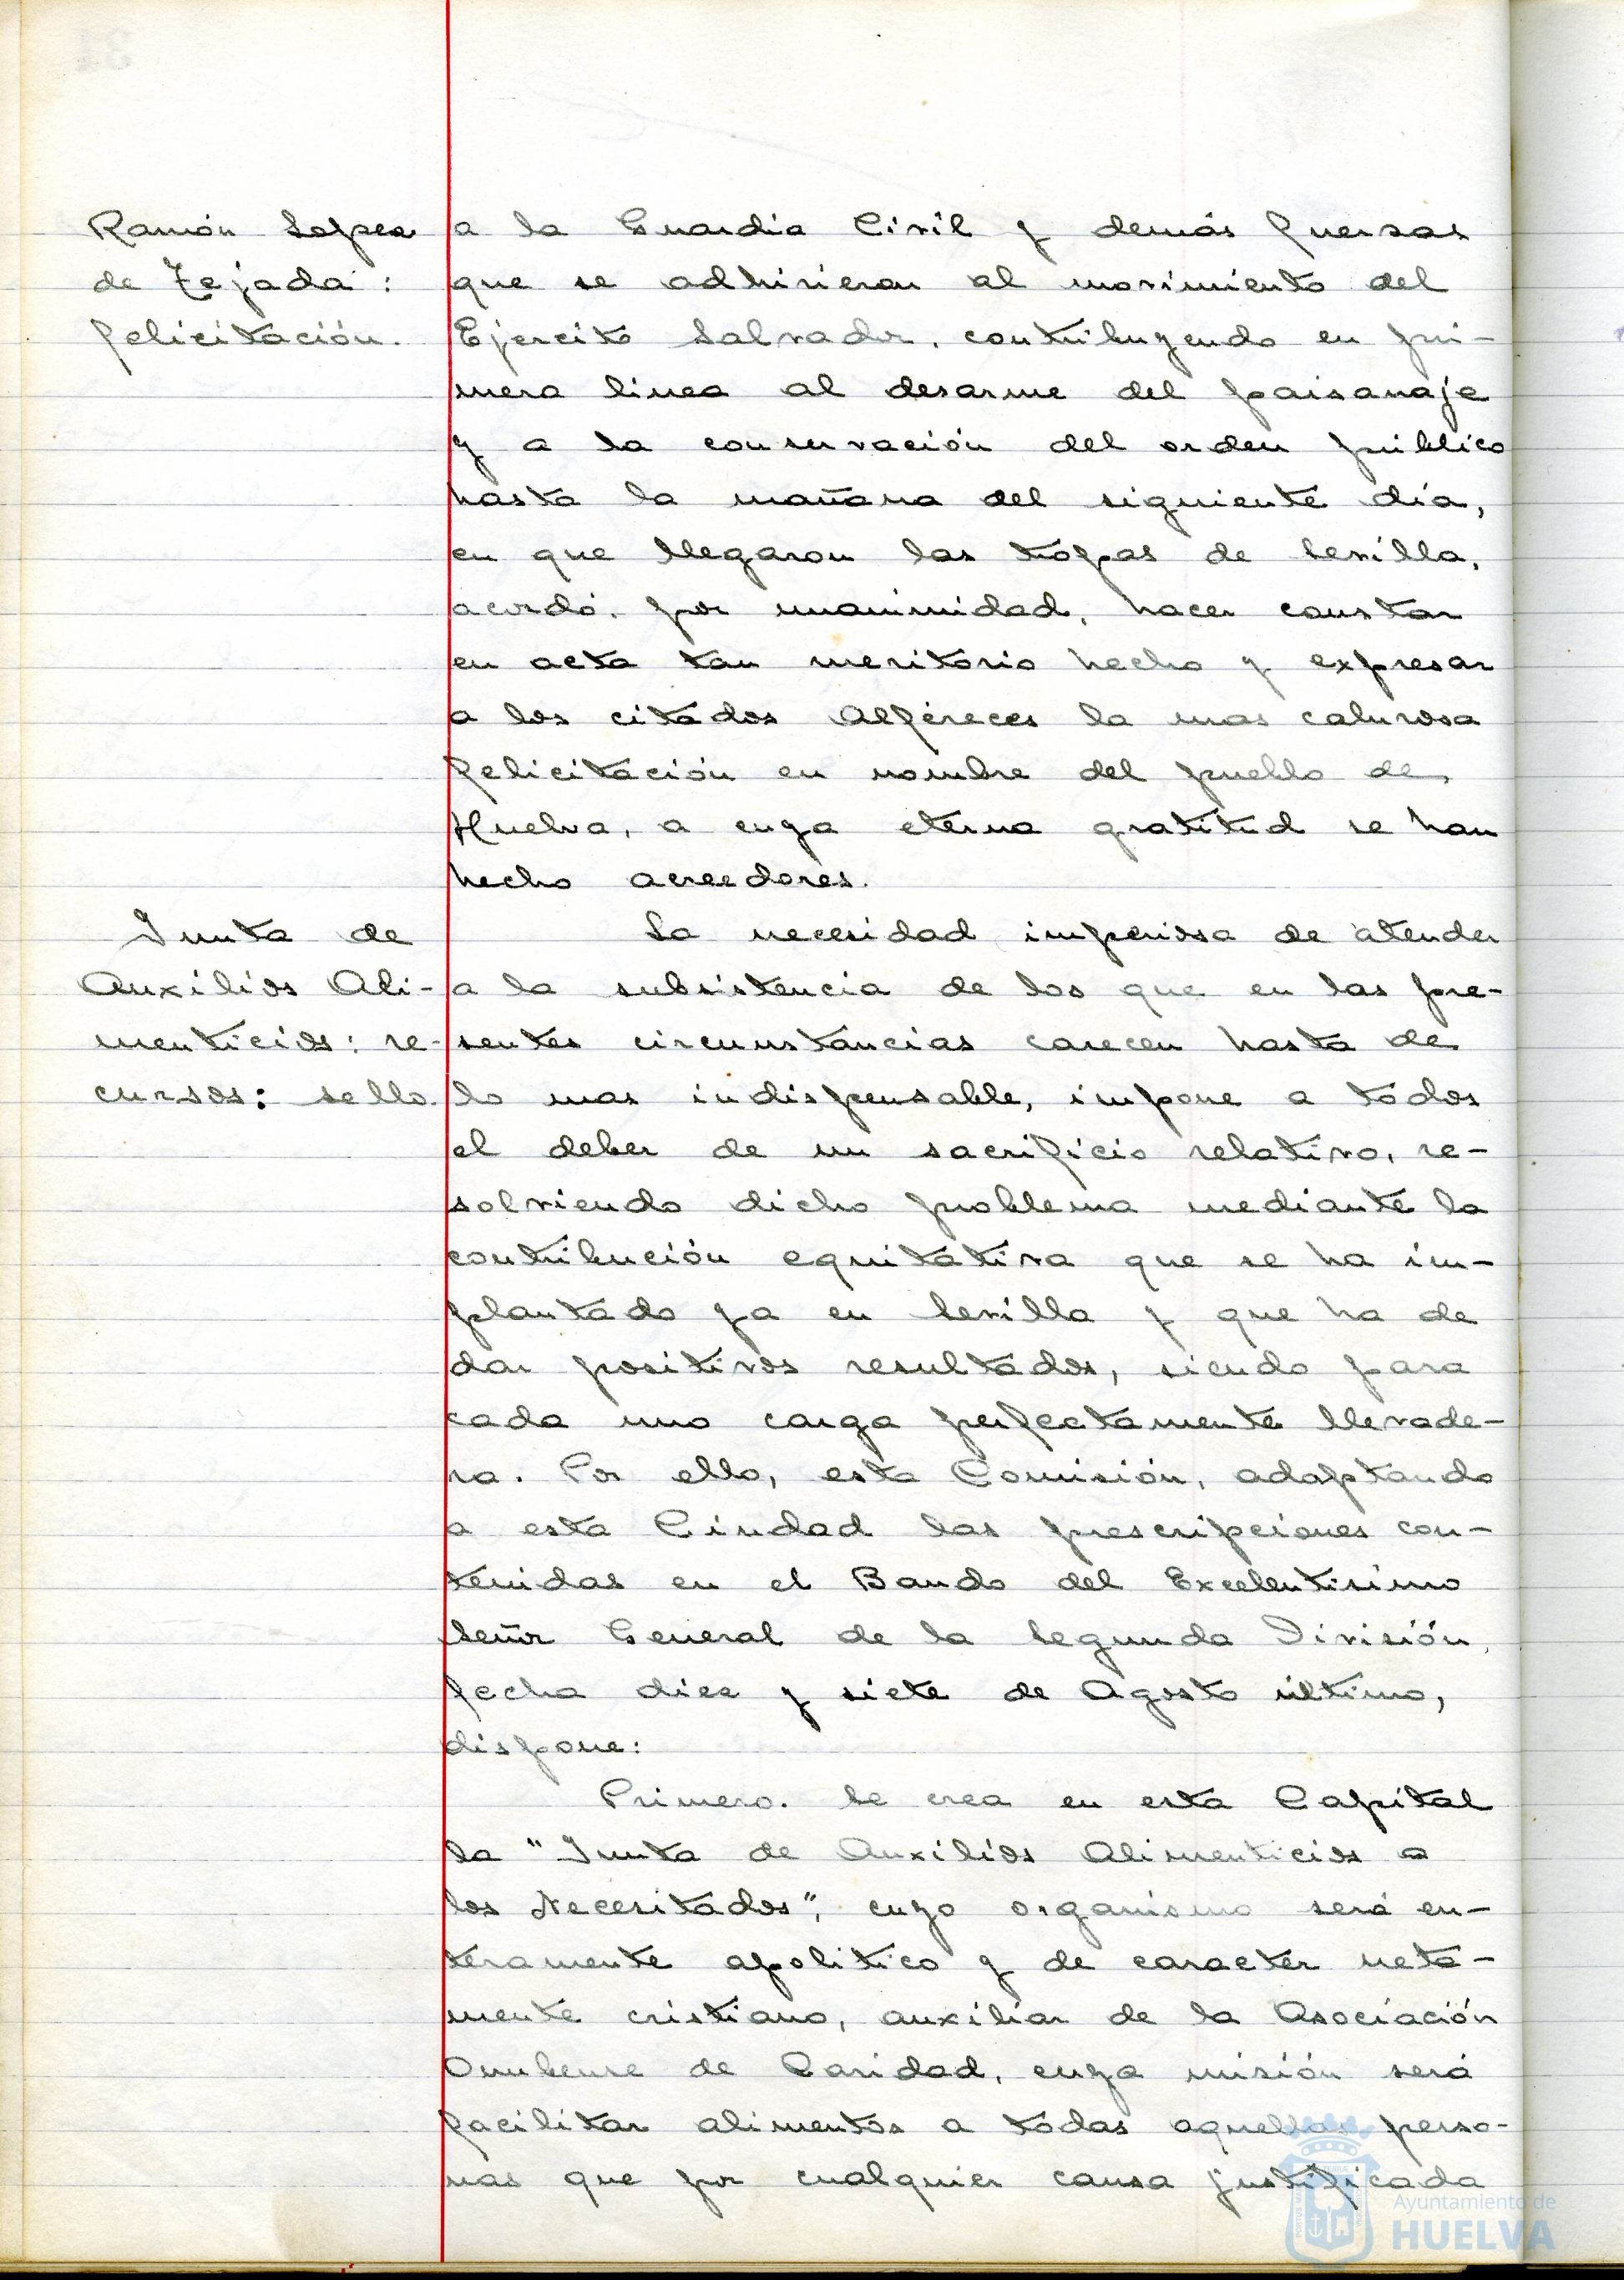 Ramón Lopez
de Tejada:
felicitación.
a la Guardia Civil y demás fuersas
que se adhirieron al movimiento del
Ejercito Salvador, contribuyendo en pri-
mera linea al desarme del paisanaje
y a la conservación del orden público
hasta la mañana del siguiente día,
en que llegaron las tropas de Sevilla,
acordó, por unanimidad, hacer constar
en acta tan meritorio hecho y expresar
a los citados Alféreces la mas calurosa
felicitación en nombre del pueblo de
Huelva, a cuya eterna gratitud se han
hecho acreedores.
Junta de
Auxilios Ali-
menticios: re-
cursos: sello.
La necesidad imperiosa de atender
a la subsistencia de los que en las pre-
sentes circunstancias carecen hasta de
lo mas indispensable, impone a todos
el deber de un sacrificio relativo, re-
solviendo dicho problema mediante la
contribución equitativa que se ha im-
plantado ya en Sevilla y que ha de
dar positivos resultados, siendo para
cada uno carga perfectamente llevade-
ra. Por ello, esta Comisión, adaptando
a esta Ciudad las prescripciones con-
tenidas en el Bando del Excelentisimo
Señor General de la Segunda División,
fecha diez y siete de Agosto último,
dispone:
Primero. Se crea en esta Capital
la "Junta de Auxilios Alimenticios a
los Necesitados", cuyo organismo será en-
teramente apolitico y de caracter neta-
mente cristiano, auxiliar de la Asociación
Onubense de Caridad, cuya misión será
facilitar alimentos a todas aquellas perso-
nas que por cualquier causa justificada
Ayuntamiento de
HUELVA